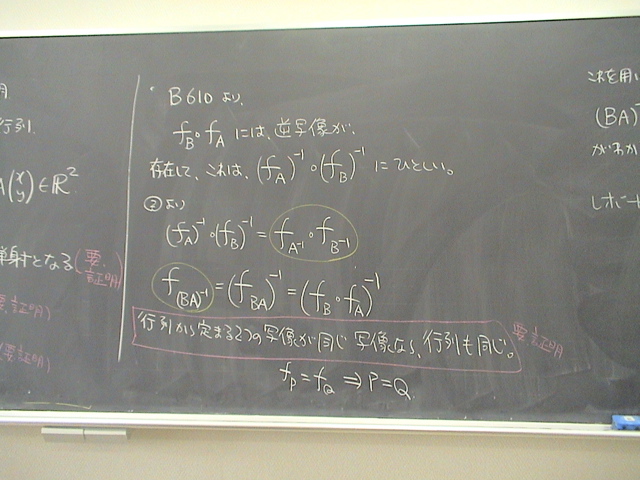 行列.
A(x y) ∈ ℝ²
単射となる(要.証明)
(要証明)
(要証明)
・B610 より,
f_B∘f_A には, 逆写像が,
存在して, これは, (f_A)⁻¹∘(f_B)⁻¹ にひとしい。
②より
(f_A)⁻¹∘(f_B)⁻¹ = f_{A⁻¹}∘f_{B⁻¹}
f_{(BA)⁻¹} = (f_{BA})⁻¹ = (f_B∘f_A)⁻¹
行列から定まる2つの写像が同じ写像なら, 行列も同じ。
要証明
f_P = f_Q ⇒ P = Q
これを用い
(BA)
がわか
レポート